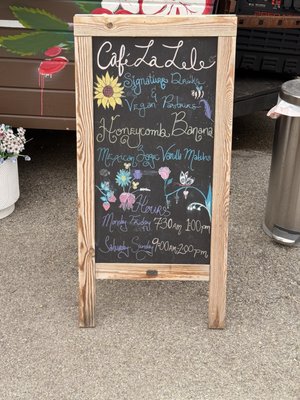 Café La Lale
Signature Drinks
&
Vegan Pastries
Honeycomb Banana
Mexican Vanilla Matcha
Hours
Monday Friday 7:30AM 1:00pm
Saturday Sunday 9:00AM 2:00pm